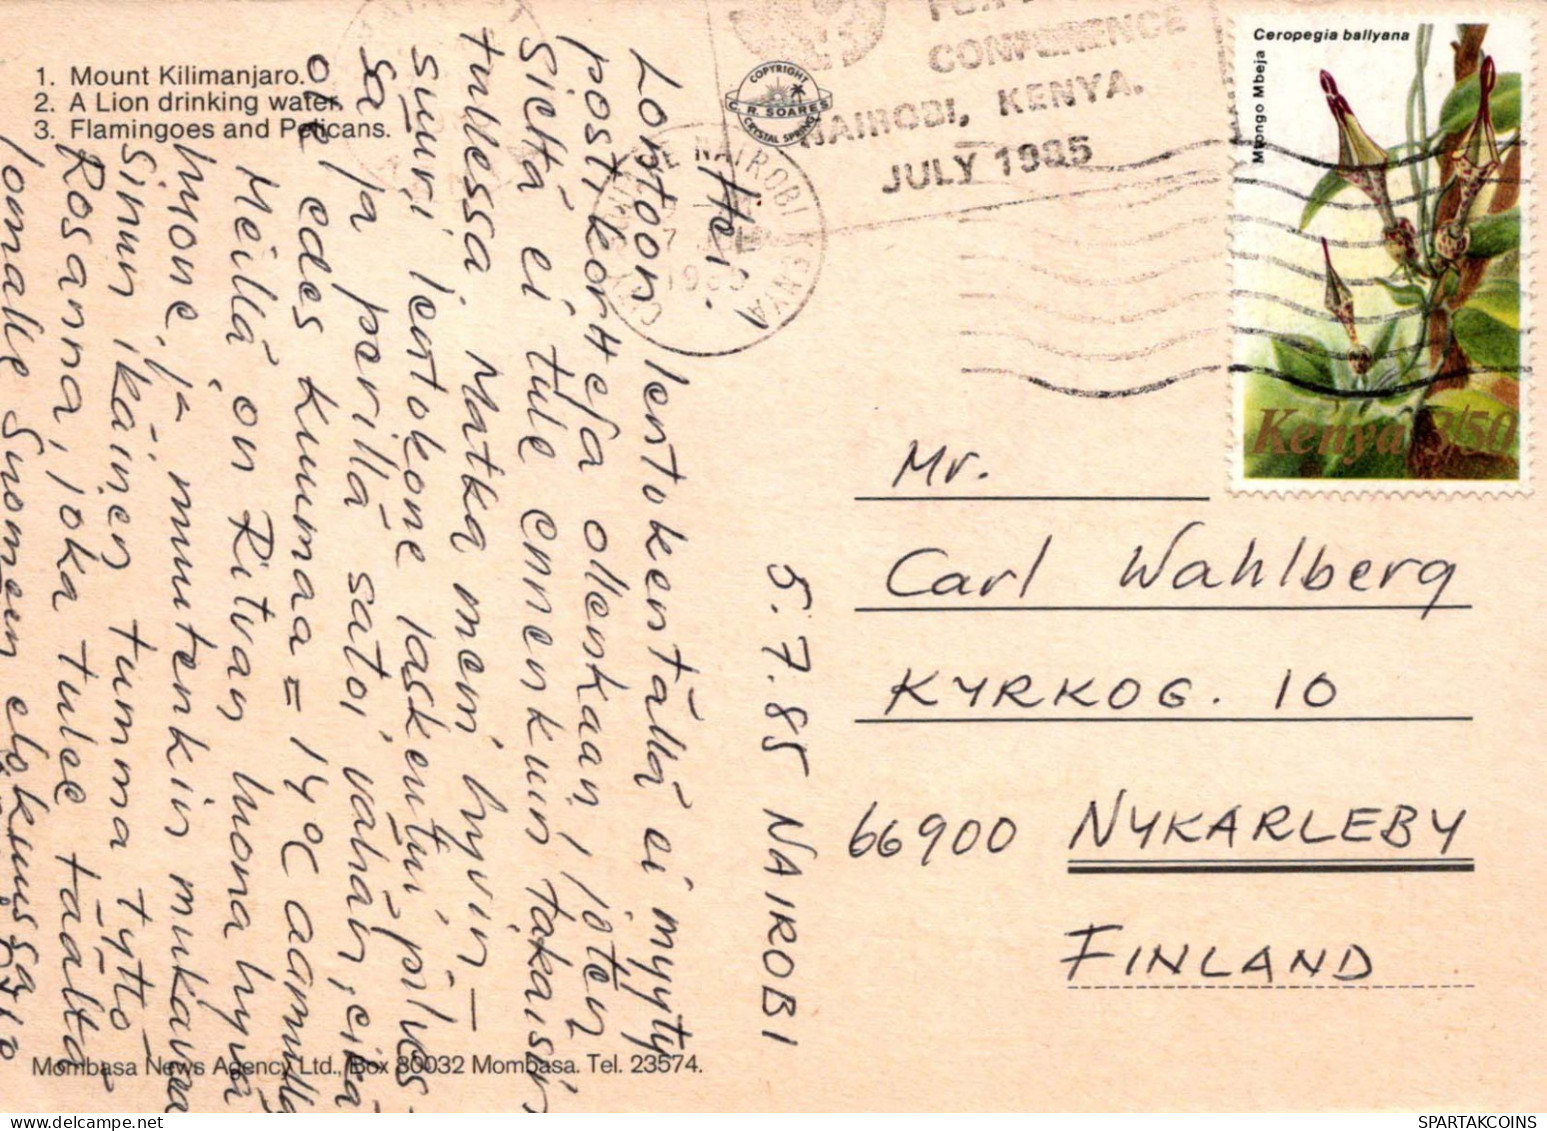 1. Mount Kilimanjaro.
2. A Lion drinking water.
3. Flamingoes and Pelicans.
COPYRIGHT
C. R. SOARES
CRYSTAL SPRINGS
CONFERENCE
NAIROBI, KENYA.
JULY 1985
NAIROBI KENYA
1985
Ceropegia ballyana
Mtongo Mbeja
Kenya 3/50
Hei!
Lontoon lentokentällä ei myyty
postikortteja ollenkaan, joten
Sieltä ei tule ennenkuin takaisin
tullessa. Matka meni hyvin –
suuri lentokone laskeutui pilves-
sä ja perillä satoi vähän, eikä
ole edes kuumaa = 14°C aamulla
Meillä on Ritvan luona hyvä
huone ja muutenkin mukavaa
Sinun ikäinen tumma tyttö
Rosanna, joka tulee täältä
lomalle Suomeen elokuussa
5.7.85 NAIROBI
Mr.
Carl Wahlberg
KYRKOG. 10
66900 NYKARLEBY
FINLAND
Mombasa News Agency Ltd., Box 80032 Mombasa. Tel. 23574.
SPARTAKCOINS